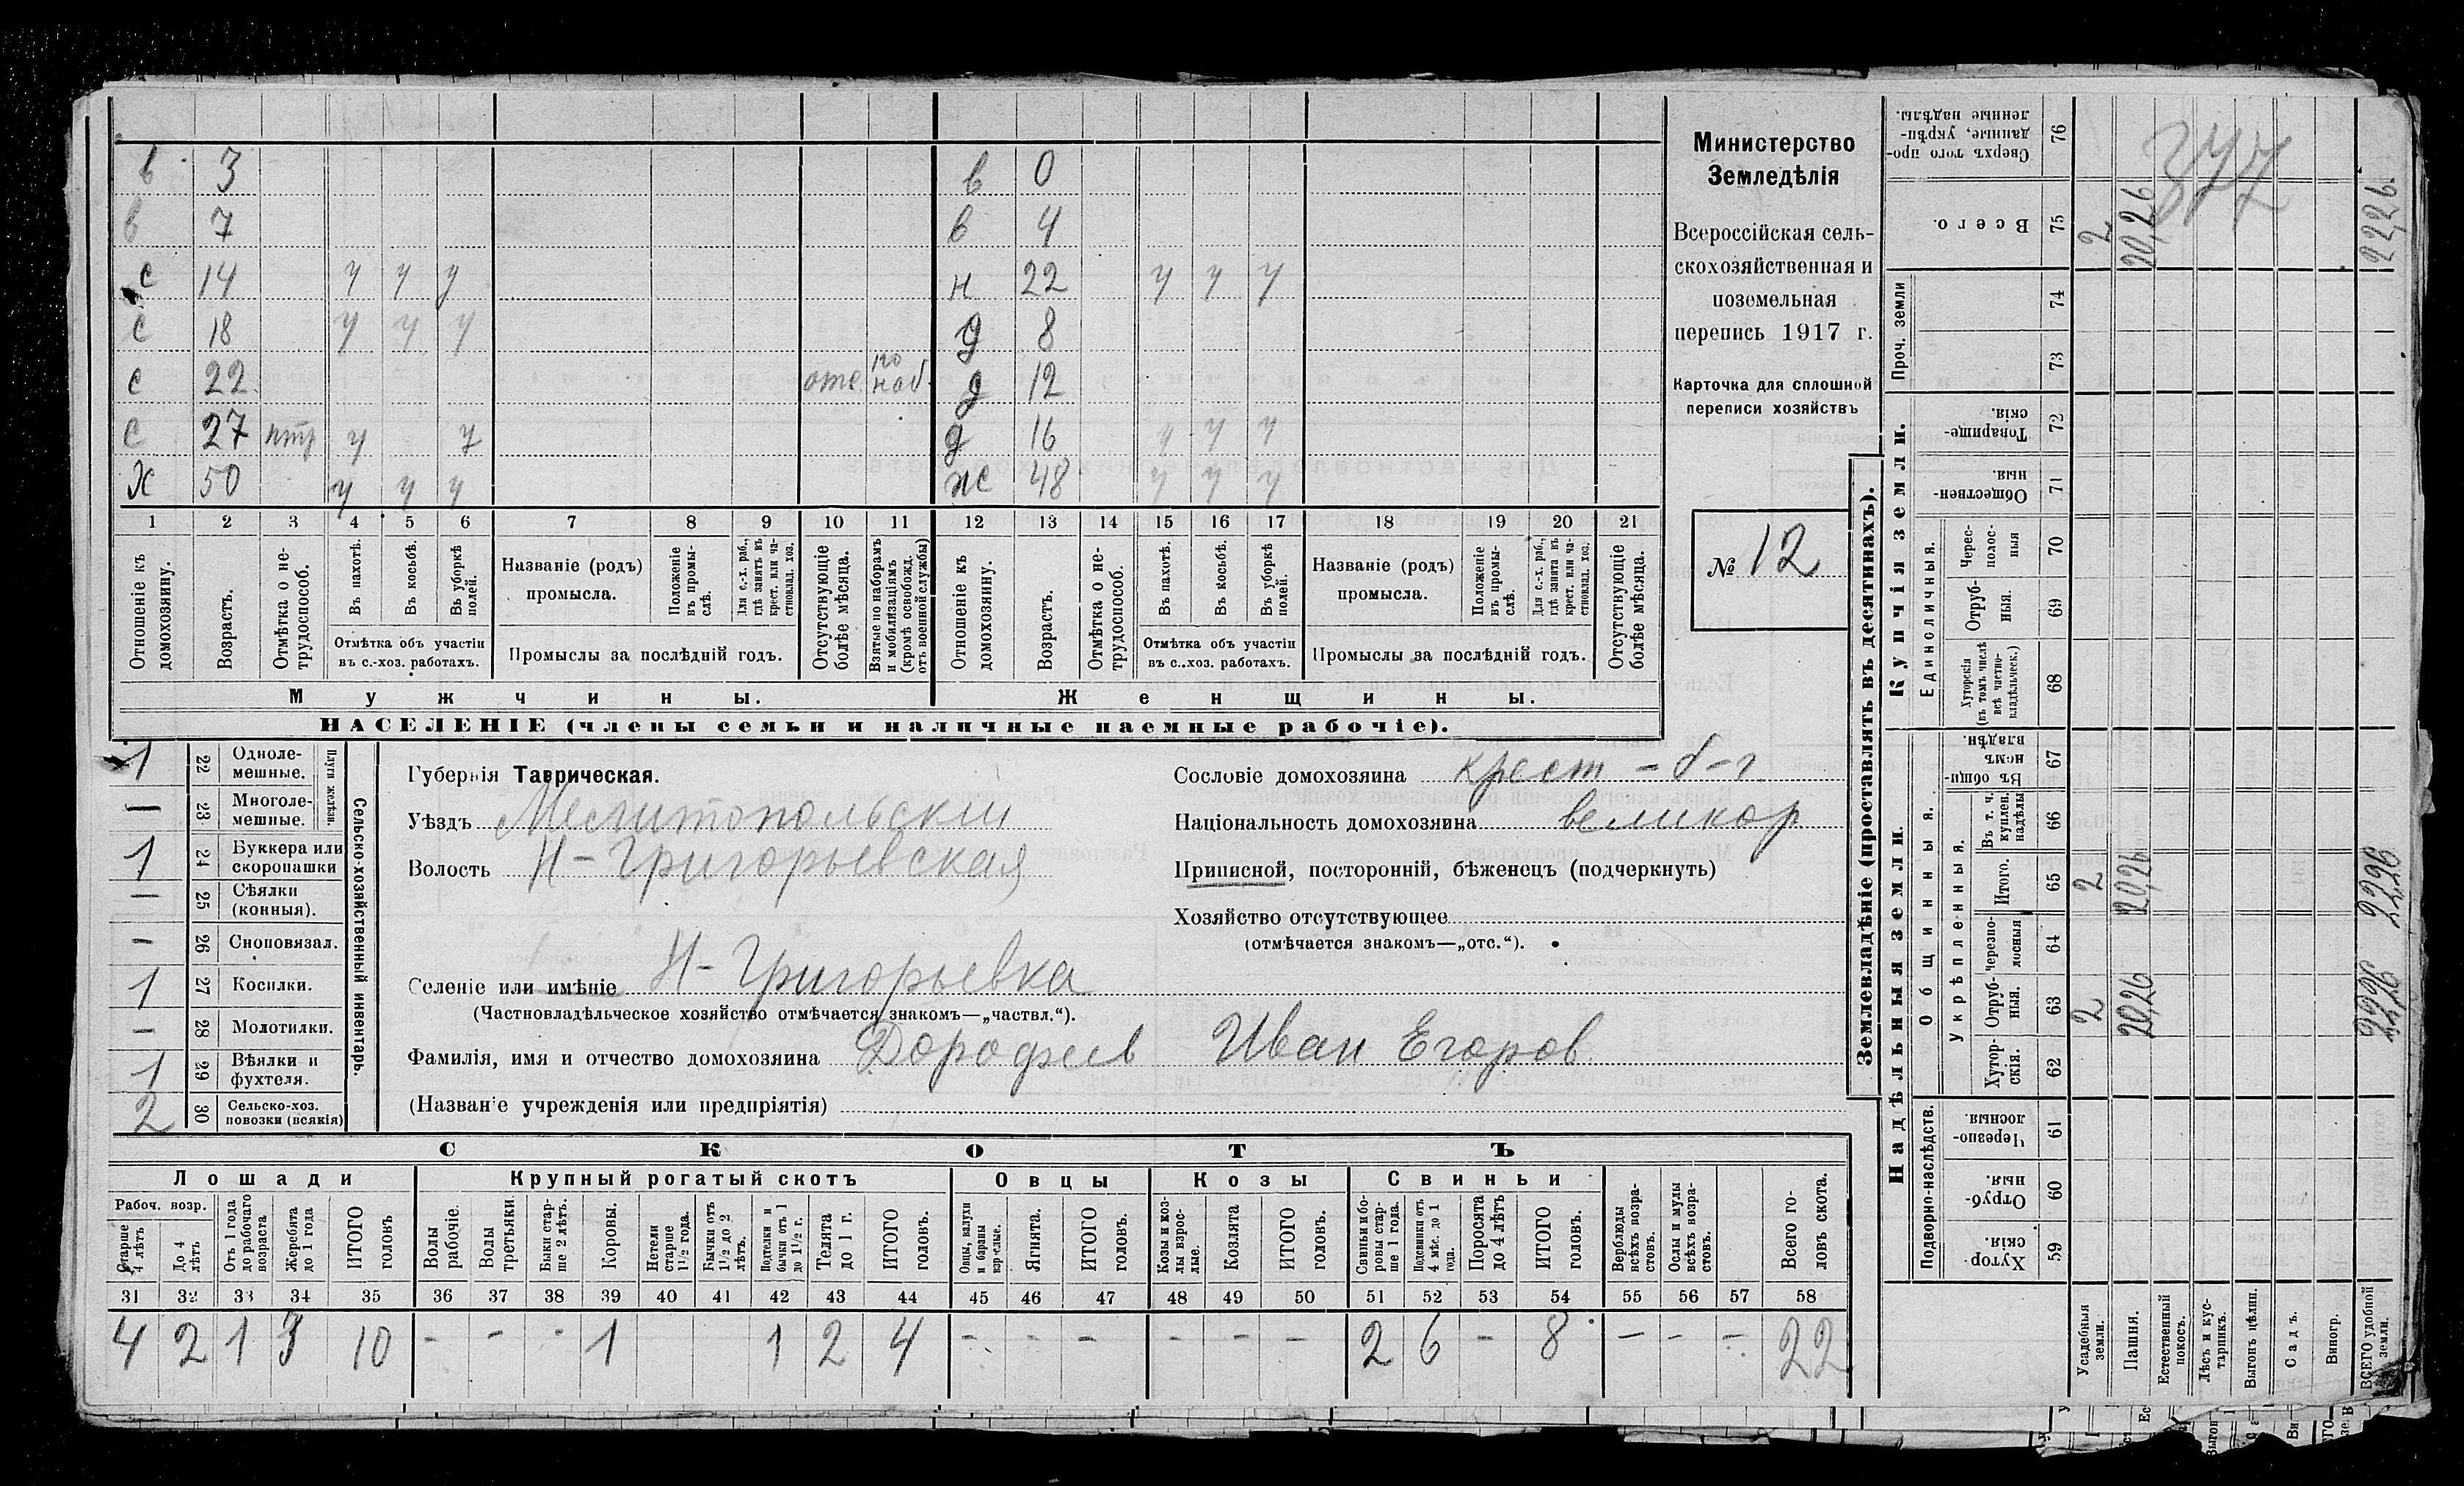 в 3 в 0
в 7 в 4
с 14 у у у н 22 у у у
с 18 у у у д 8
с 22 отс по наб. д 12
с 27 у у д 16 у у у
Х 50 у у у ж 48 у у у
1 2 3 4 5 6 7 8 9 10 11 12 13 14 15 16 17 18 19 20 21
Отношеніе къ домохозяину.
Возрастъ.
Отмѣтка о не-трудоспособ.
Въ пахотѣ.
Въ косьбѣ.
Въ уборкѣ полей.
Отмѣтка объ участіи
въ с.-хоз. работахъ.
Названіе (родъ)
промысла.
Положеніе въ промы-слѣ.
Для с.-х. раб., гдѣ занятъ въ крест. или ча-стновлад. хоз.
Промыслы за послѣдній годъ.
Отсутствующіе болѣе мѣсяца.
Взятые по наборамъ и мобилизаціямъ (кромѣ освобожд. отъ военной службы)
Отношеніе къ домохозяину.
Возрастъ.
Отмѣтка о не-трудоспособ.
Въ пахотѣ.
Въ косьбѣ.
Въ уборкѣ полей.
Отмѣтка объ участіи
въ с.-хоз. работахъ.
Названіе (родъ)
промысла.
Положеніе въ промы-слѣ.
Для с.-х. раб., гдѣ занята въ крест. или ча-стновлад. хоз.
Промыслы за послѣдній годъ.
Отсутствующіе болѣе мѣсяца.
Мужчины. Женщины.
НАСЕЛЕНІЕ (члены семьи и наличные наемные рабочіе).
Министерство
Земледѣлія
Всероссійская сель-
скохозяйственная и
поземельная
перепись 1917 г.
Карточка для сплошной
переписи хозяйствъ
№ 12
1 22 Одноле-мешные.
— 23 Многоле-мешные.
Плуги желѣзн.
1 24 Буккера или скоропашки
— 25 Сѣялки (конныя).
— 26 Сноповязал.
1 27 Косилки.
— 28 Молотилки.
1 29 Вѣялки и фухтеля.
2 30 Сельско-хоз. повозки (всякія)
Сельско-хозяйственный инвентарь.
Губернія Таврическая.
Уѣздъ Мелитопольский
Волость Н-Григорьевская
Селеніе или имѣніе Н-Григорьевка
(Частновладѣльческое хозяйство отмѣчается знакомъ—„частвл.“).
Фамилія, имя и отчество домохозяина Дорофеев Иван Егоров
(Названіе учрежденія или предпріятія)
Сословіе домохозяина крест - б-г
Національность домохозяина великор
Приписной, посторонній, бѣженецъ (подчеркнуть)
Хозяйство отсутствующее
(отмѣчается знакомъ—„отс.“).
СКОТЪ
Лошади Крупный рогатый скотъ Овцы Козы Свиньи
Рабоч. возр.
Старше 4 лѣтъ
До 4 лѣтъ
Отъ 1 года до рабочаго возраста
Жеребята до 1 года
ИТОГО головъ
Волы рабочіе.
Волы третьяки.
Быки стар-ше 2 лѣтъ.
Коровы.
Нетели старше 1½ года.
Бычки отъ 1½ до 2 лѣтъ.
Подтелки и бычки отъ 1 до 1½ г.
Телята до 1 г.
ИТОГО головъ.
Овцы, валухи и бараны взрослые.
Ягнята.
ИТОГО головъ.
Козы и коз-лы взрос-лые.
Козлята
ИТОГО головъ.
Свиньи и бо-ровы стар-ше 1 года.
Подсвинки отъ 4 мѣс. до 1 года.
Поросята до 4 лѣтъ
ИТОГО головъ.
Верблюды всѣхъ возра-стовъ.
Ослы и мулы всѣхъ возра-стовъ.
Всего го-ловъ скота.
31 32 33 34 35 36 37 38 39 40 41 42 43 44 45 46 47 48 49 50 51 52 53 54 55 56 57 58
4 2 1 3 10 - - - 1 1 2 4 - - - - - - 2 6 - 8 - - - 22
Землевладѣніе (проставлять въ десятинахъ).
Надѣльныя земли. Купчія земли. Проч. земли
Подворно-наслѣдств.
Общинныя.
Укрѣпленныя.
Единоличныя.
Хутор-скія. 59
Отруб-ныя. 60
Черезпо-лосныя 61
Хутор-скія. 62
Отруб-ныя. 63
Черезпо-лосныя 64
Итого. 65
Въ т. ч. куплен. надѣлы 66
Въ общи-нномъ владѣн. 67
Хуторскія (въ томъ числѣ всѣ частно-владѣльческ.) 68
Отруб-ныя. 69
Черес-полос-ныя 70
Обществен-ныя. 71
Товарище-скія. 72
73
74
Всего. 75
Сверхъ того про-данные, укрѣп-ленные надѣлы. 76
Усадебныя земли. 2 2 2
Пашня. 20,26 20,26 20,26
Естественный покосъ.
Лѣсъ и кус-тарникъ.
Выгонъ цѣлин.
Садъ.
Виногр.
ВСЕГО удобной земли. 22,26 22,26 22,26.
377